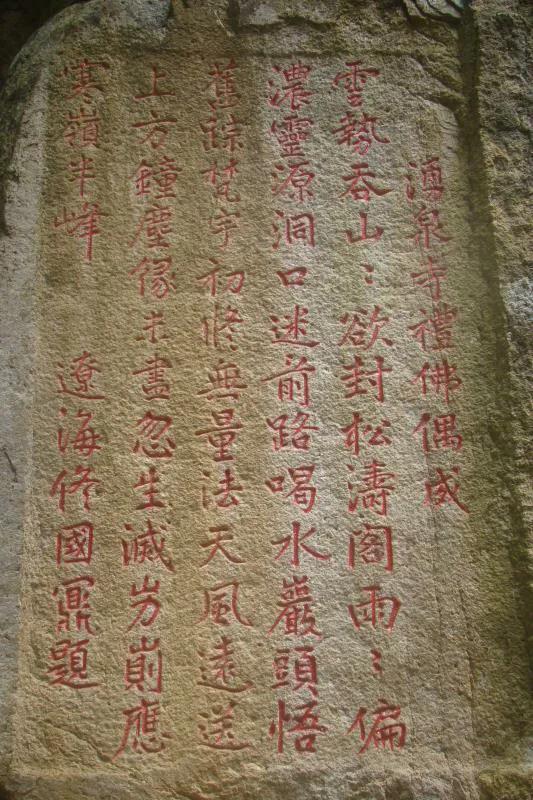 湧泉寺禮佛偶成
雲勢吞山〻欲封松濤閣雨〻偏
濃靈源洞口迷前路喝水巖頭悟
舊踪梵宇初修無量法天風遠送
上方鐘塵緣未盡忽生滅屴崱應
寒嶺半峰 遼海佟國鼐題